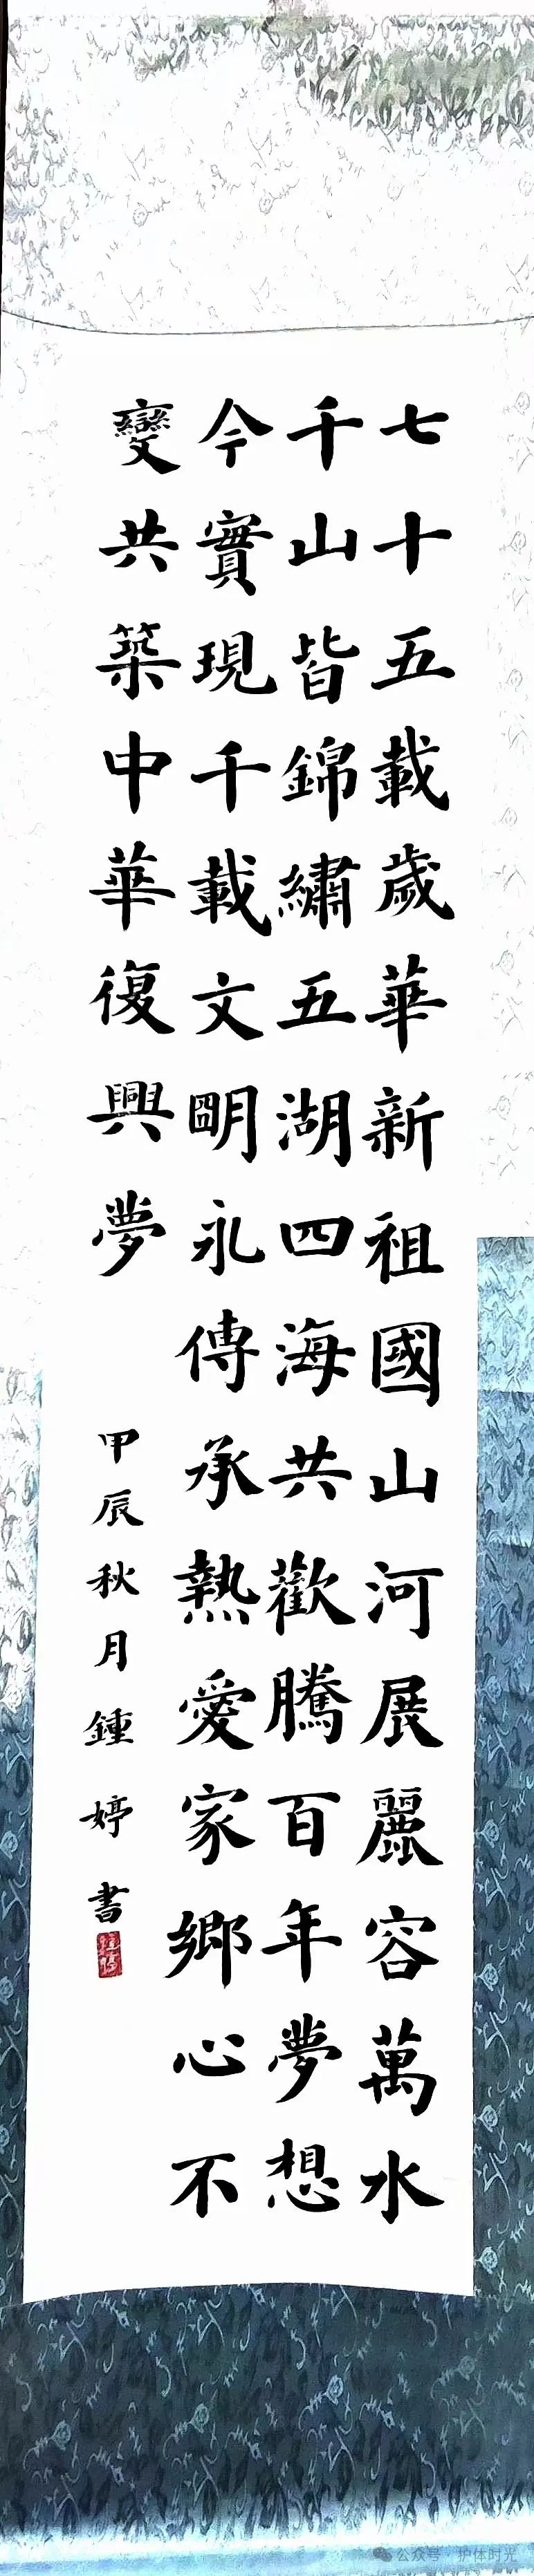 七十五載歲華新祖國山河展麗容萬水
千山皆錦繡五湖四海共歡騰百年夢想
今實現千載文明永傳承熱愛家鄉心不
變共築中華復興夢
甲辰秋月鍾婷書
鍾婷
公众号·护体时光